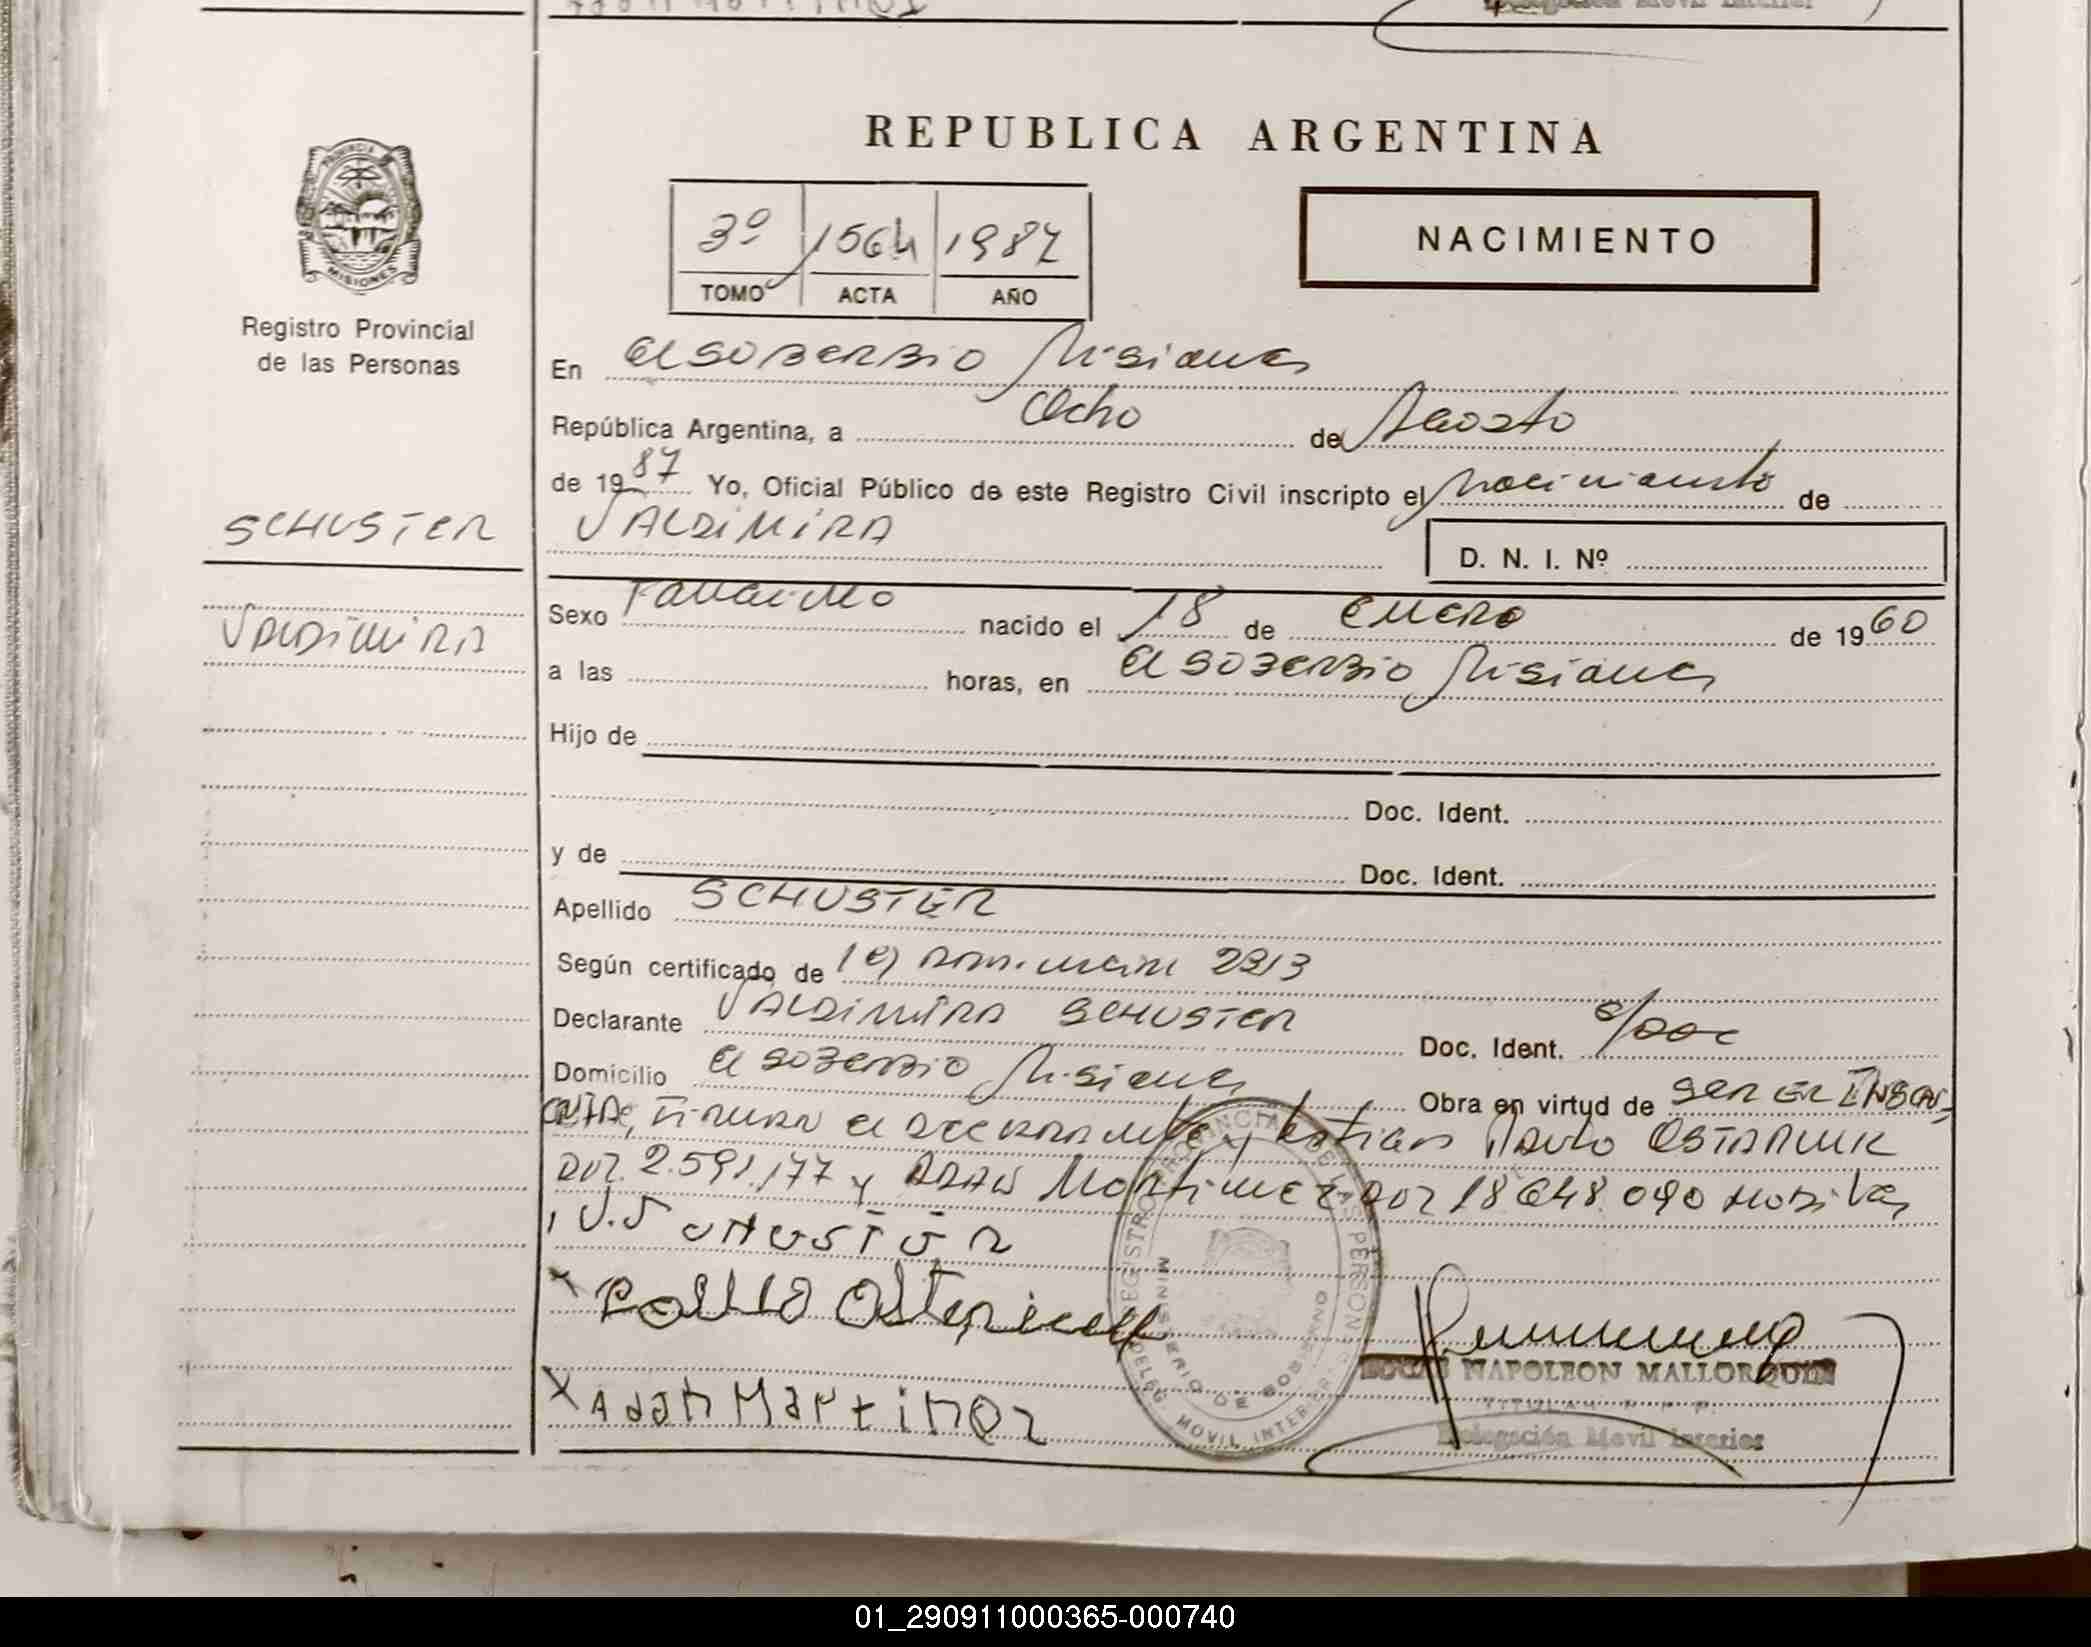 REPUBLICA ARGENTINA
PROVINCIA
MISIONES
Registro Provincial
de las Personas
3º 1564 1987
TOMO ACTA AÑO
NACIMIENTO
En El Soberbio Misiones
República Argentina, a Ocho de Agosto
de 1987 Yo, Oficial Público de este Registro Civil inscripto el nacimiento de
SCHUSTER
VALDIMIRA
D. N. I. Nº
VALDIMIRA
Sexo Femenino nacido el 18 de Enero de 1960
a las horas, en El Soberbio Misiones
Hijo de
Doc. Ident.
y de Doc. Ident.
Apellido SCHUSTER
Según certificado de ley 2313
Declarante VALDIMIRA SCHUSTER Doc. Ident. s/doc
Domicilio El Soberbio Misiones Obra en virtud de ser el
firman el declarante y testigos Paulo
2.591.177 y Adan Martinez 18 648 090
V.S
Adan Martinez
REGISTRO PROVINCIAL DE LAS PERSONAS
MINISTERIO DE GOBIERNO
DELEG. MOVIL INTERIOR
NAPOLEON MALLORQUIN
TITULAR R.P.P.
Delegación Movil Interior
01_290911000365-000740